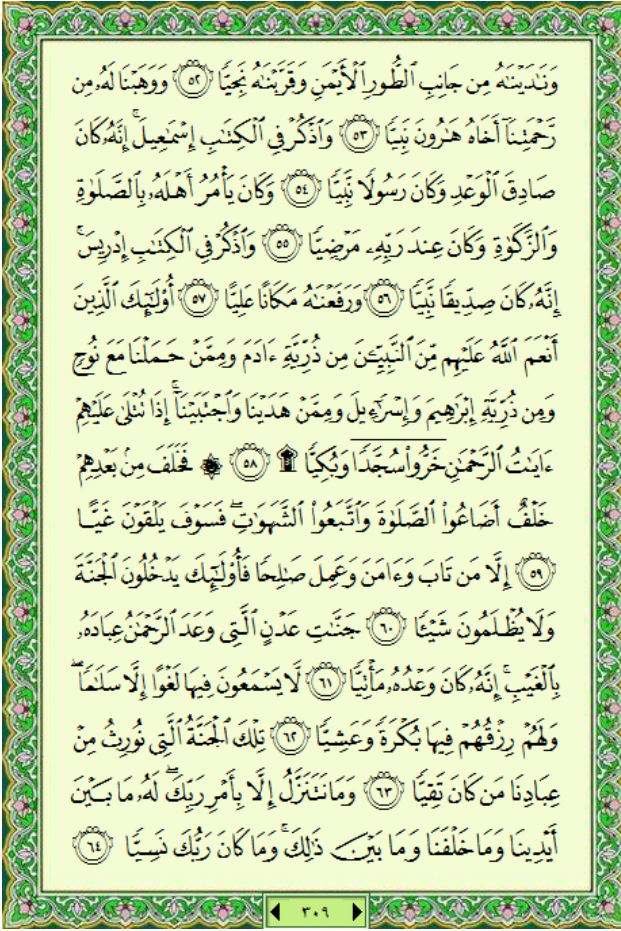 وَنَـٰدَيۡنَـٰهُ مِن جَانِبِ ٱلطُّورِ ٱلۡأَيۡمَنِ وَقَرَّبۡنَـٰهُ نَجِيًّا ۝٥٢ وَوَهَبۡنَا لَهُۥ مِن
رَّحۡمَتِنَآ أَخَاهُ هَـٰرُونَ نَبِيًّا ۝٥٣ وَٱذۡكُرۡ فِي ٱلۡكِتَـٰبِ إِسۡمَـٰعِيلَۚ إِنَّهُۥ كَانَ
صَادِقَ ٱلۡوَعۡدِ وَكَانَ رَسُولًا نَّبِيًّا ۝٥٤ وَكَانَ يَأۡمُرُ أَهۡلَهُۥ بِٱلصَّلَوٰةِ
وَٱلزَّكَوٰةِ وَكَانَ عِندَ رَبِّهِۦ مَرۡضِيًّا ۝٥٥ وَٱذۡكُرۡ فِي ٱلۡكِتَـٰبِ إِدۡرِيسَۚ
إِنَّهُۥ كَانَ صِدِّيقًا نَّبِيًّا ۝٥٦ وَرَفَعۡنَـٰهُ مَكَانًا عَلِيًّا ۝٥٧ أُوْلَـٰٓئِكَ ٱلَّذِينَ
أَنۡعَمَ ٱللَّهُ عَلَيۡهِم مِّنَ ٱلنَّبِيِّـۧنَ مِن ذُرِّيَّةِ ءَادَمَ وَمِمَّنۡ حَمَلۡنَا مَعَ نُوحٍ
وَمِن ذُرِّيَّةِ إِبۡرَٰهِيمَ وَإِسۡرَـٰٓءِيلَ وَمِمَّنۡ هَدَيۡنَا وَٱجۡتَبَيۡنَآۚ إِذَا تُتۡلَىٰ عَلَيۡهِمۡ
ءَايَـٰتُ ٱلرَّحۡمَـٰنِ خَرُّواْ سُجَّدًا وَبُكِيًّا ۩ ۝٥٨ ۞ فَخَلَفَ مِنۢ بَعۡدِهِمۡ
خَلۡفٌ أَضَاعُواْ ٱلصَّلَوٰةَ وَٱتَّبَعُواْ ٱلشَّهَوَٰتِۖ فَسَوۡفَ يَلۡقَوۡنَ غَيًّا
۝٥٩ إِلَّا مَن تَابَ وَءَامَنَ وَعَمِلَ صَـٰلِحًا فَأُوْلَـٰٓئِكَ يَدۡخُلُونَ ٱلۡجَنَّةَ
وَلَا يُظۡلَمُونَ شَيۡـًٔا ۝٦٠ جَنَّـٰتِ عَدۡنٍ ٱلَّتِي وَعَدَ ٱلرَّحۡمَـٰنُ عِبَادَهُۥ
بِٱلۡغَيۡبِۚ إِنَّهُۥ كَانَ وَعۡدُهُۥ مَأۡتِيًّا ۝٦١ لَّا يَسۡمَعُونَ فِيهَا لَغۡوًا إِلَّا سَلَـٰمًاۖ
وَلَهُمۡ رِزۡقُهُمۡ فِيهَا بُكۡرَةً وَعَشِيًّا ۝٦٢ تِلۡكَ ٱلۡجَنَّةُ ٱلَّتِي نُورِثُ مِنۡ
عِبَادِنَا مَن كَانَ تَقِيًّا ۝٦٣ وَمَا نَتَنَزَّلُ إِلَّا بِأَمۡرِ رَبِّكَۖ لَهُۥ مَا بَيۡنَ
أَيۡدِينَا وَمَا خَلۡفَنَا وَمَا بَيۡنَ ذَٰلِكَۚ وَمَا كَانَ رَبُّكَ نَسِيًّا ۝٦٤
٣٠٩